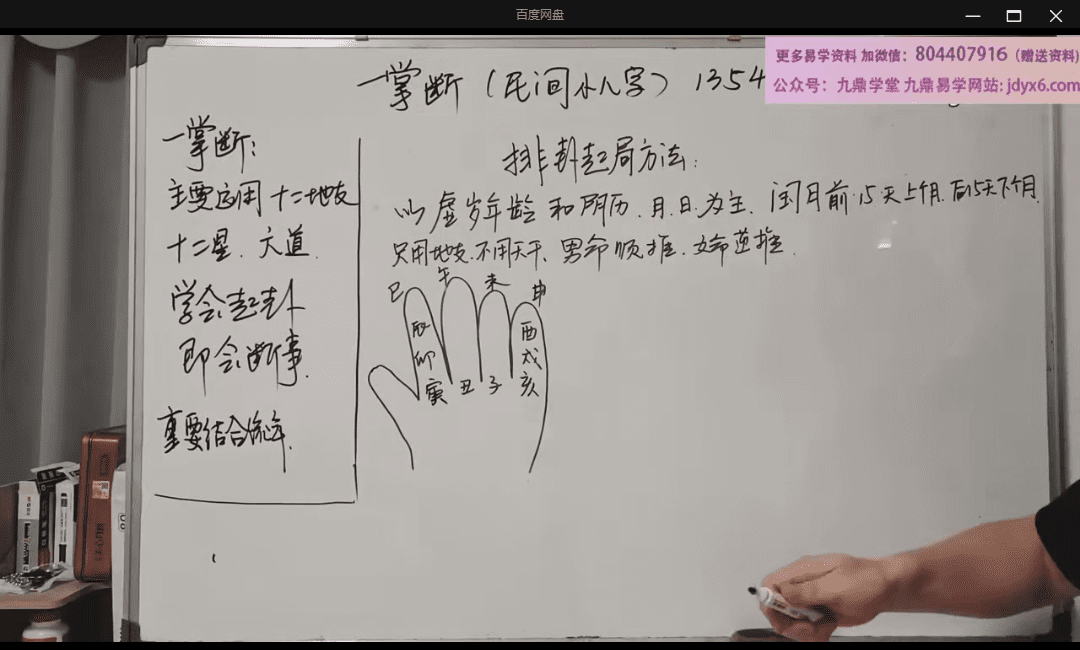 百度网盘
更多易学资料 加微信：804407916（赠送资料）
公众号：九鼎学堂 九鼎易学网站: jdyx6.com
一掌断（民间小八字）1354
一掌断：
主要运用十二地支
十二星、六道
学会起卦
即会断事.
重要结合流年.
排卦起局方法：
以虚岁年龄和阴历.月.日.为主.闰月前15天上个月.后15天下个月.
只用地支.不用天干、男命顺推.女命逆推.
巳 午 未 申
辰 酉
卯 戌
寅 丑 子 亥